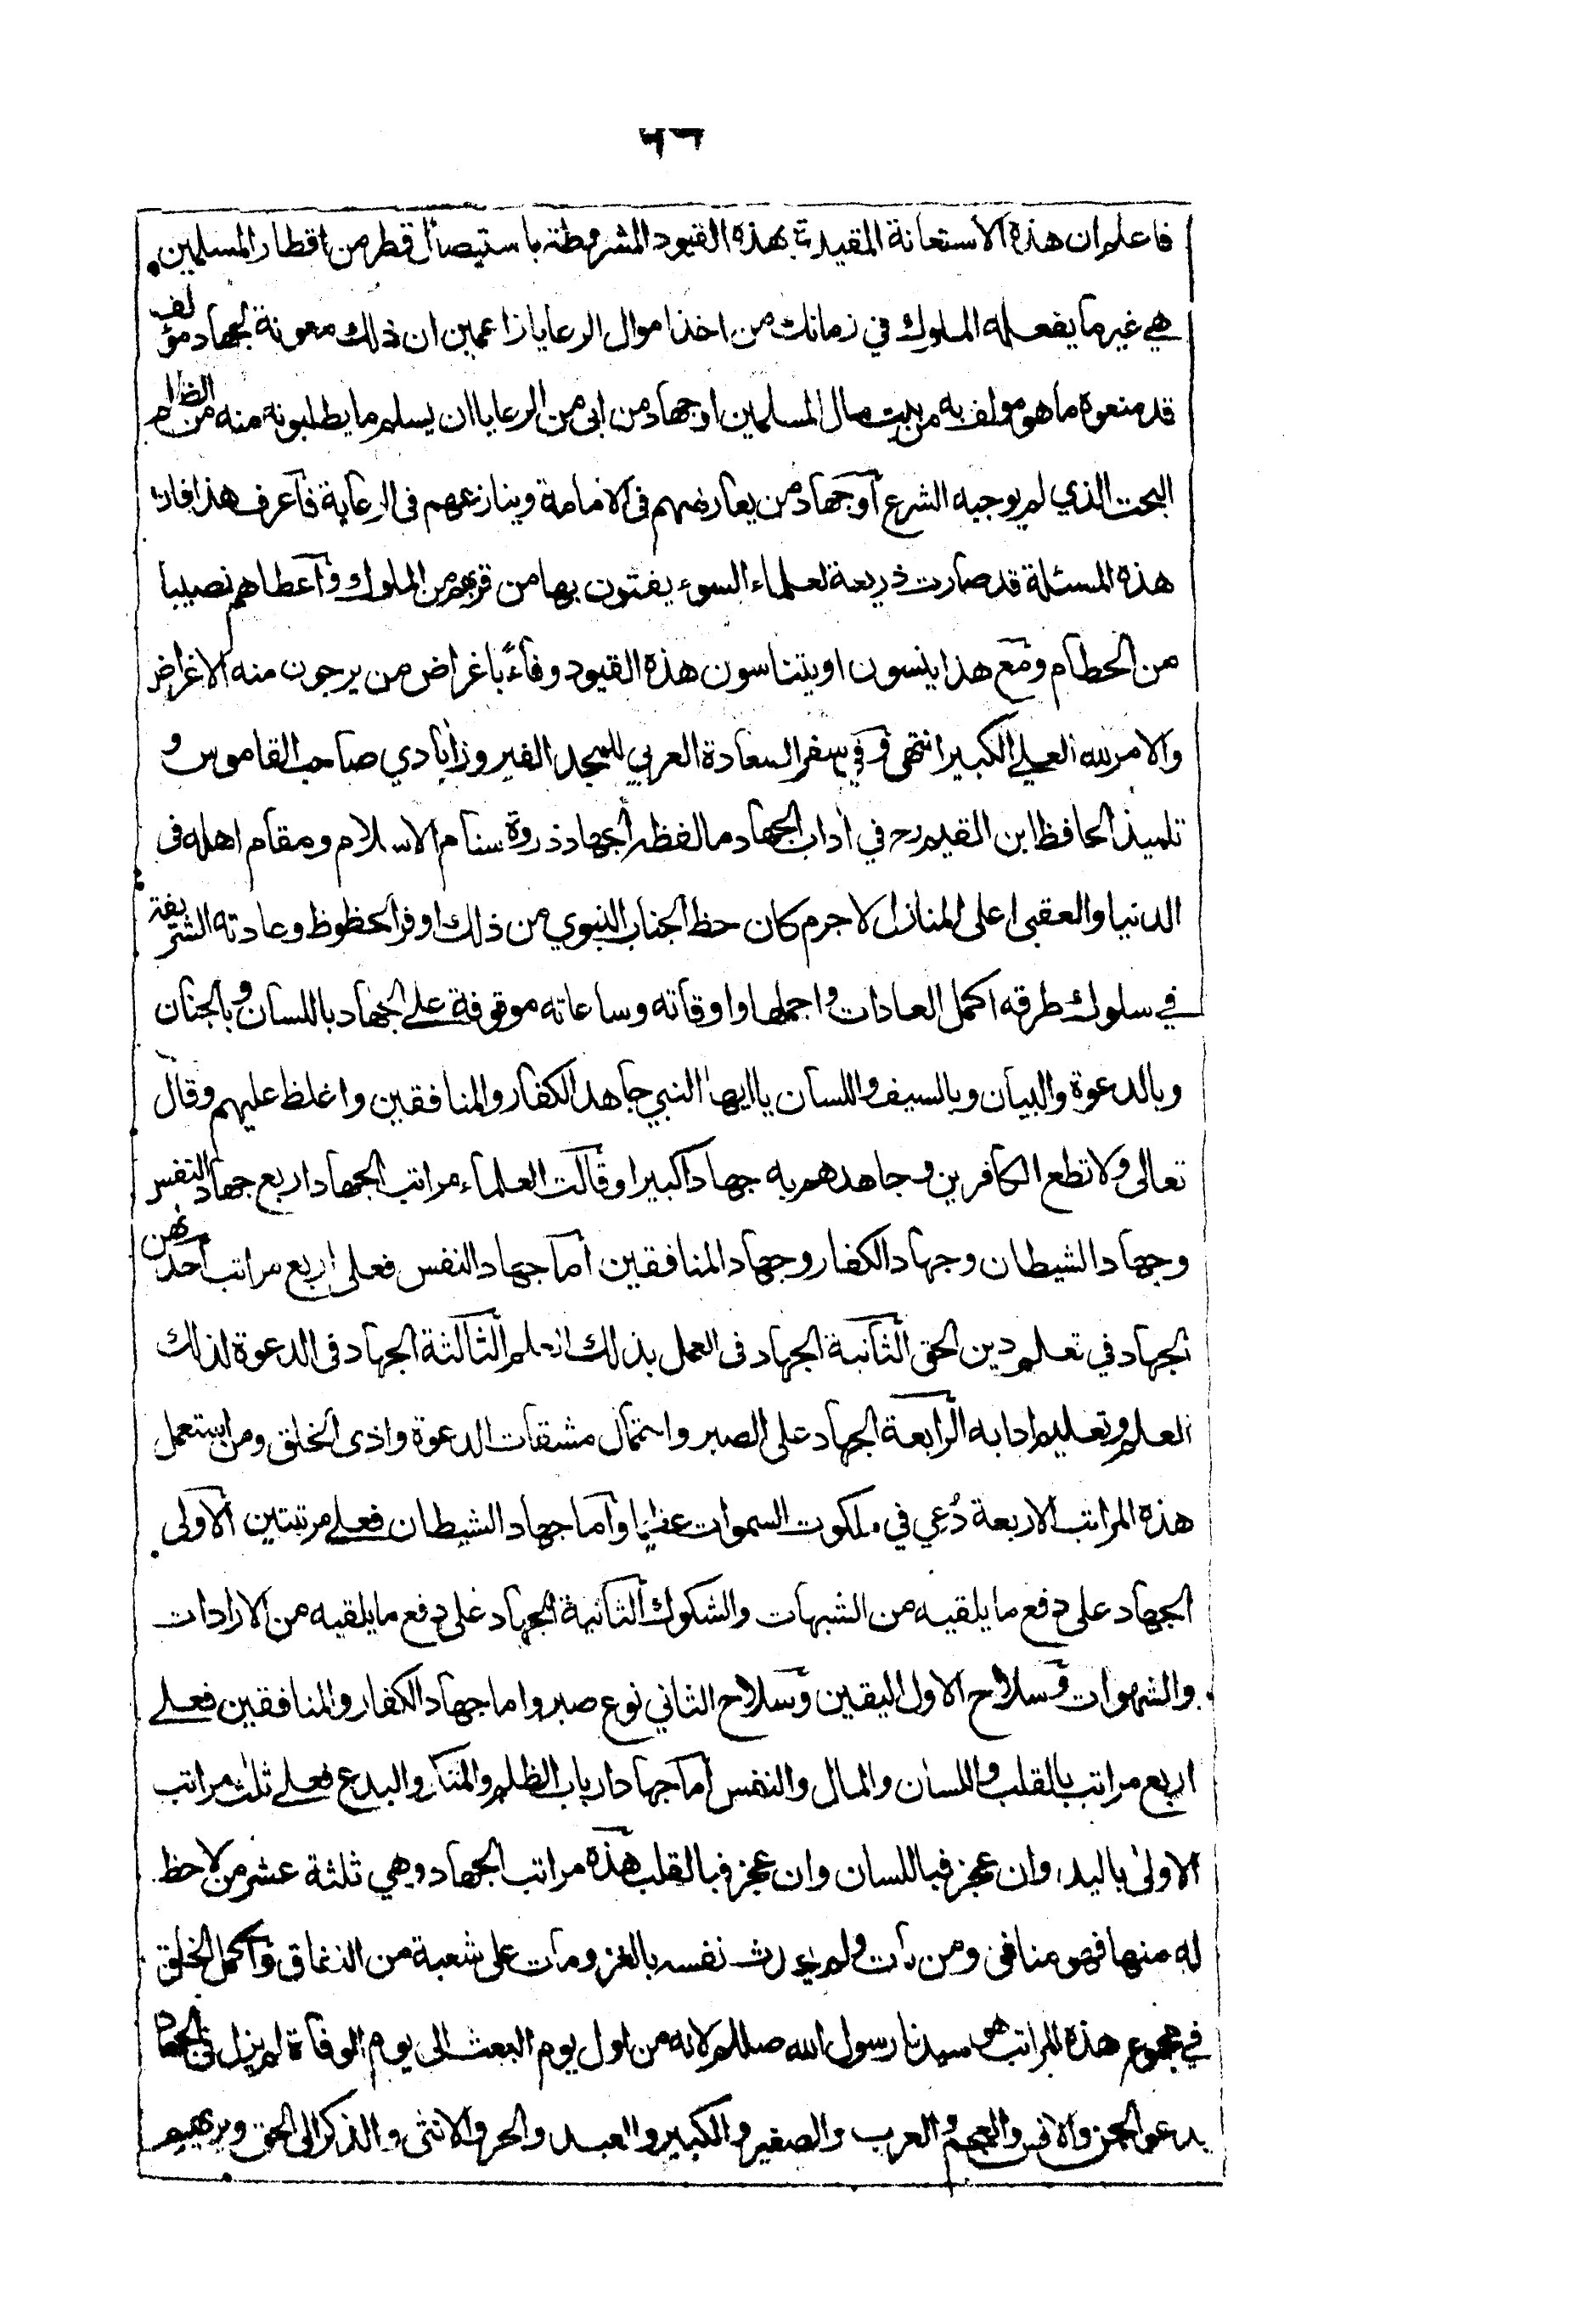 ٢٦
فاعلم ان هذه الاستعانة المقيدة بهذه القيود المشروطة باستيصال قطر من اقطار المسلمين
هي غير ما يفعله الملوك في زمانك من اخذ اموال الرعايا زاعمين ان ذلك معونة لجهاد مؤلف
قد منعوه ما هو مولف به من بيت مال المسلمين او جهاد من ابى من الرعايا ان يسلم ما يطلبونه منه من الظلم
البحت الذي لم يوجبه الشرع أو جهاد من يعارضهم فى الامامة وينازعهم فى الرعاية فاعرف هذا فان
هذه المسئلة قد صارت ذريعة لعلماء السوء يفتون بها من قربهم من الملوك وأعطاهم نصيبا
من الحطام ومع هذا ينسون او يتناسون هذه القيود وفاءً باغراض من يرجون منه الاغراض
والامر لله العلي الكبير انتهى وفي سفر السعادة العربي للمجد الفيروزابادي صاحب القاموس و
تلميذ الحافظ ابن القيم رح في اداب الجهاد ما لفظه الجهاد ذروة سنام الاسلام ومقام اهله فى
الدنيا والعقبى اعلى المنازل لاجرم كان حظ الجناب النبوي من ذلك اوفر الحظوظ وعادته الشريفة
في سلوك طرقه اكمل العادات واجملها واوقاته وساعاته موقوفة على الجهاد باللسان وبالجنان
وبالدعوة والبيان وبالسيف واللسان ياايها النبي جاهد الكفار والمنافقين واغلظ عليهم وقال
تعالى ولا تطع الكافرين وجاهدهم به جهادا كبيرا وقالت العلماء مراتب الجهاد اربع جهاد النفس
وجهاد الشيطان وجهاد الكفار وجهاد المنافقين أما جهاد النفس فعلى اربع مراتب أحدهن
الجهاد في تعلم دين الحق الثانية الجهاد فى العمل بذلك العلم الثالثة الجهاد فى الدعوة لذلك
العلم وتعليم ادابه الرابعة الجهاد على الصبر واحتمال مشقات الدعوة واذى الخلق ومن استعمل
هذه المراتب الاربعة دُعي في ملكوت السموات عظيما وأما جهاد الشيطان فعلى مرتبتين الاولى
الجهاد على دفع ما يلقيه من الشبهات والشكوك الثانية الجهاد على دفع ما يلقيه من الارادات
والشهوات وسلاح الاول اليقين وسلاح الثاني نوع صبر واما جهاد الكفار والمنافقين فعلى
اربع مراتب بالقلب واللسان والمال والنفس أما جهاد ارباب الظلم والمنكر والبدع فعلى ثلث مراتب
الاولى باليد وان عجز فباللسان وان عجز فبالقلب هذه مراتب الجهاد وهي ثلثة عشر من لا حظ
له منها فهو منافق ومن مات ولم يحدث نفسه بالغزو مات على شعبة من النفاق وأكمل الخلق
في مجموع هذه المراتب هو سيدنا رسول الله صللم لانه من اول يوم البعث الى يوم الوفاة لم يزل فى الجهاد
يدعو الجن والانس والعجم والعرب والصغير والكبير والعبد والحر والانثى والذكر الى الحق